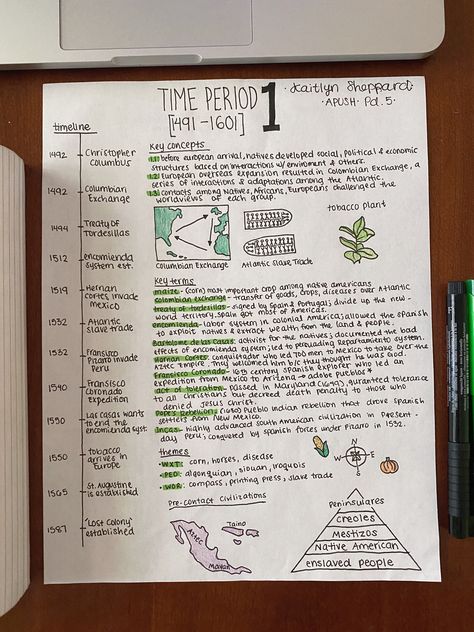 TIME PERIOD 1
[491-1601]
Kaitlyn Sheppard
APUSH Pd. 5
timeline
1492 Christopher
Columbus
1492 Columbian
Exchange
1494 Treaty of
Tordesillas
1512 encomienda
system est.
1519 Hernan
Cortes invade
mexico
1532 Atlantic
slave trade
1532 Fransisco
Pizaro invade
Peru
1540 Fransisco
coronado
expedition
1550 Las casas wants
to end the
encomienda syst.
1550 tobacco
arrives in
Europe
1565 St. Augustine
is established
1587 "Lost Colony"
established
Key concepts
1.1 before european arrival, natives developed social, political & economic
structures based on interactions w/ enviroment & others.
1.2 European overseas expansion resulted in Colombian Exchange, a
series of interactions & adaptations among the Atlantic.
1.3 contacts among Natives, Africans, Europeans challenged the
worldviews of each group.
Columbian Exchange
Atlantic Slave Trade
tobacco plant
Key terms
maize- (corn) most important crop among native americans
colombian exchange- transfer of goods, crops, diseases over Atlantic
treaty of tordesillas- signed by Spain & Portugal; divide up the new-
world territory. Spain got most of Americas.
encomienda- labor system in colonial America; allowed the Spanish
to exploit natives & extract wealth from the land & people.
Bartolome de las Casas- activist for the natives; documented the bad
effects of encomienda system; led to persuading Repartamiento system.
Hernan Cortes- conquistador who led 700 men to Mexico to take over the
Aztec Empire. They welcomed him b/c they thought he was God.
Fransisco Coronado- 16th century Spanish Explorer who led an
expedition from Mexico to Arizona → adobe pueblos
act of toleration- passed in Maryland (1649), guranteed tolerance
to all christians but decreed death penalty to those who
denied Jesus Christ.
Pope's Rebellion- (1680) Pueblo Indian rebellion that drove Spanish
settlers from New Mexico.
Incas- highly advanced south American civilization in present-
day Peru; conquered by spanish forces under Pizarro in 1532.
themes
- WXT: corn, horses, disease
- PEO: algonquian, siouan, iroquois
- WOR: compass, printing press, slave trade
N
W E
S
Pre-contact Civilizations
Aztec
Mayan
Taino
Peninsulares
creoles
Mestizos
Native American
enslaved people